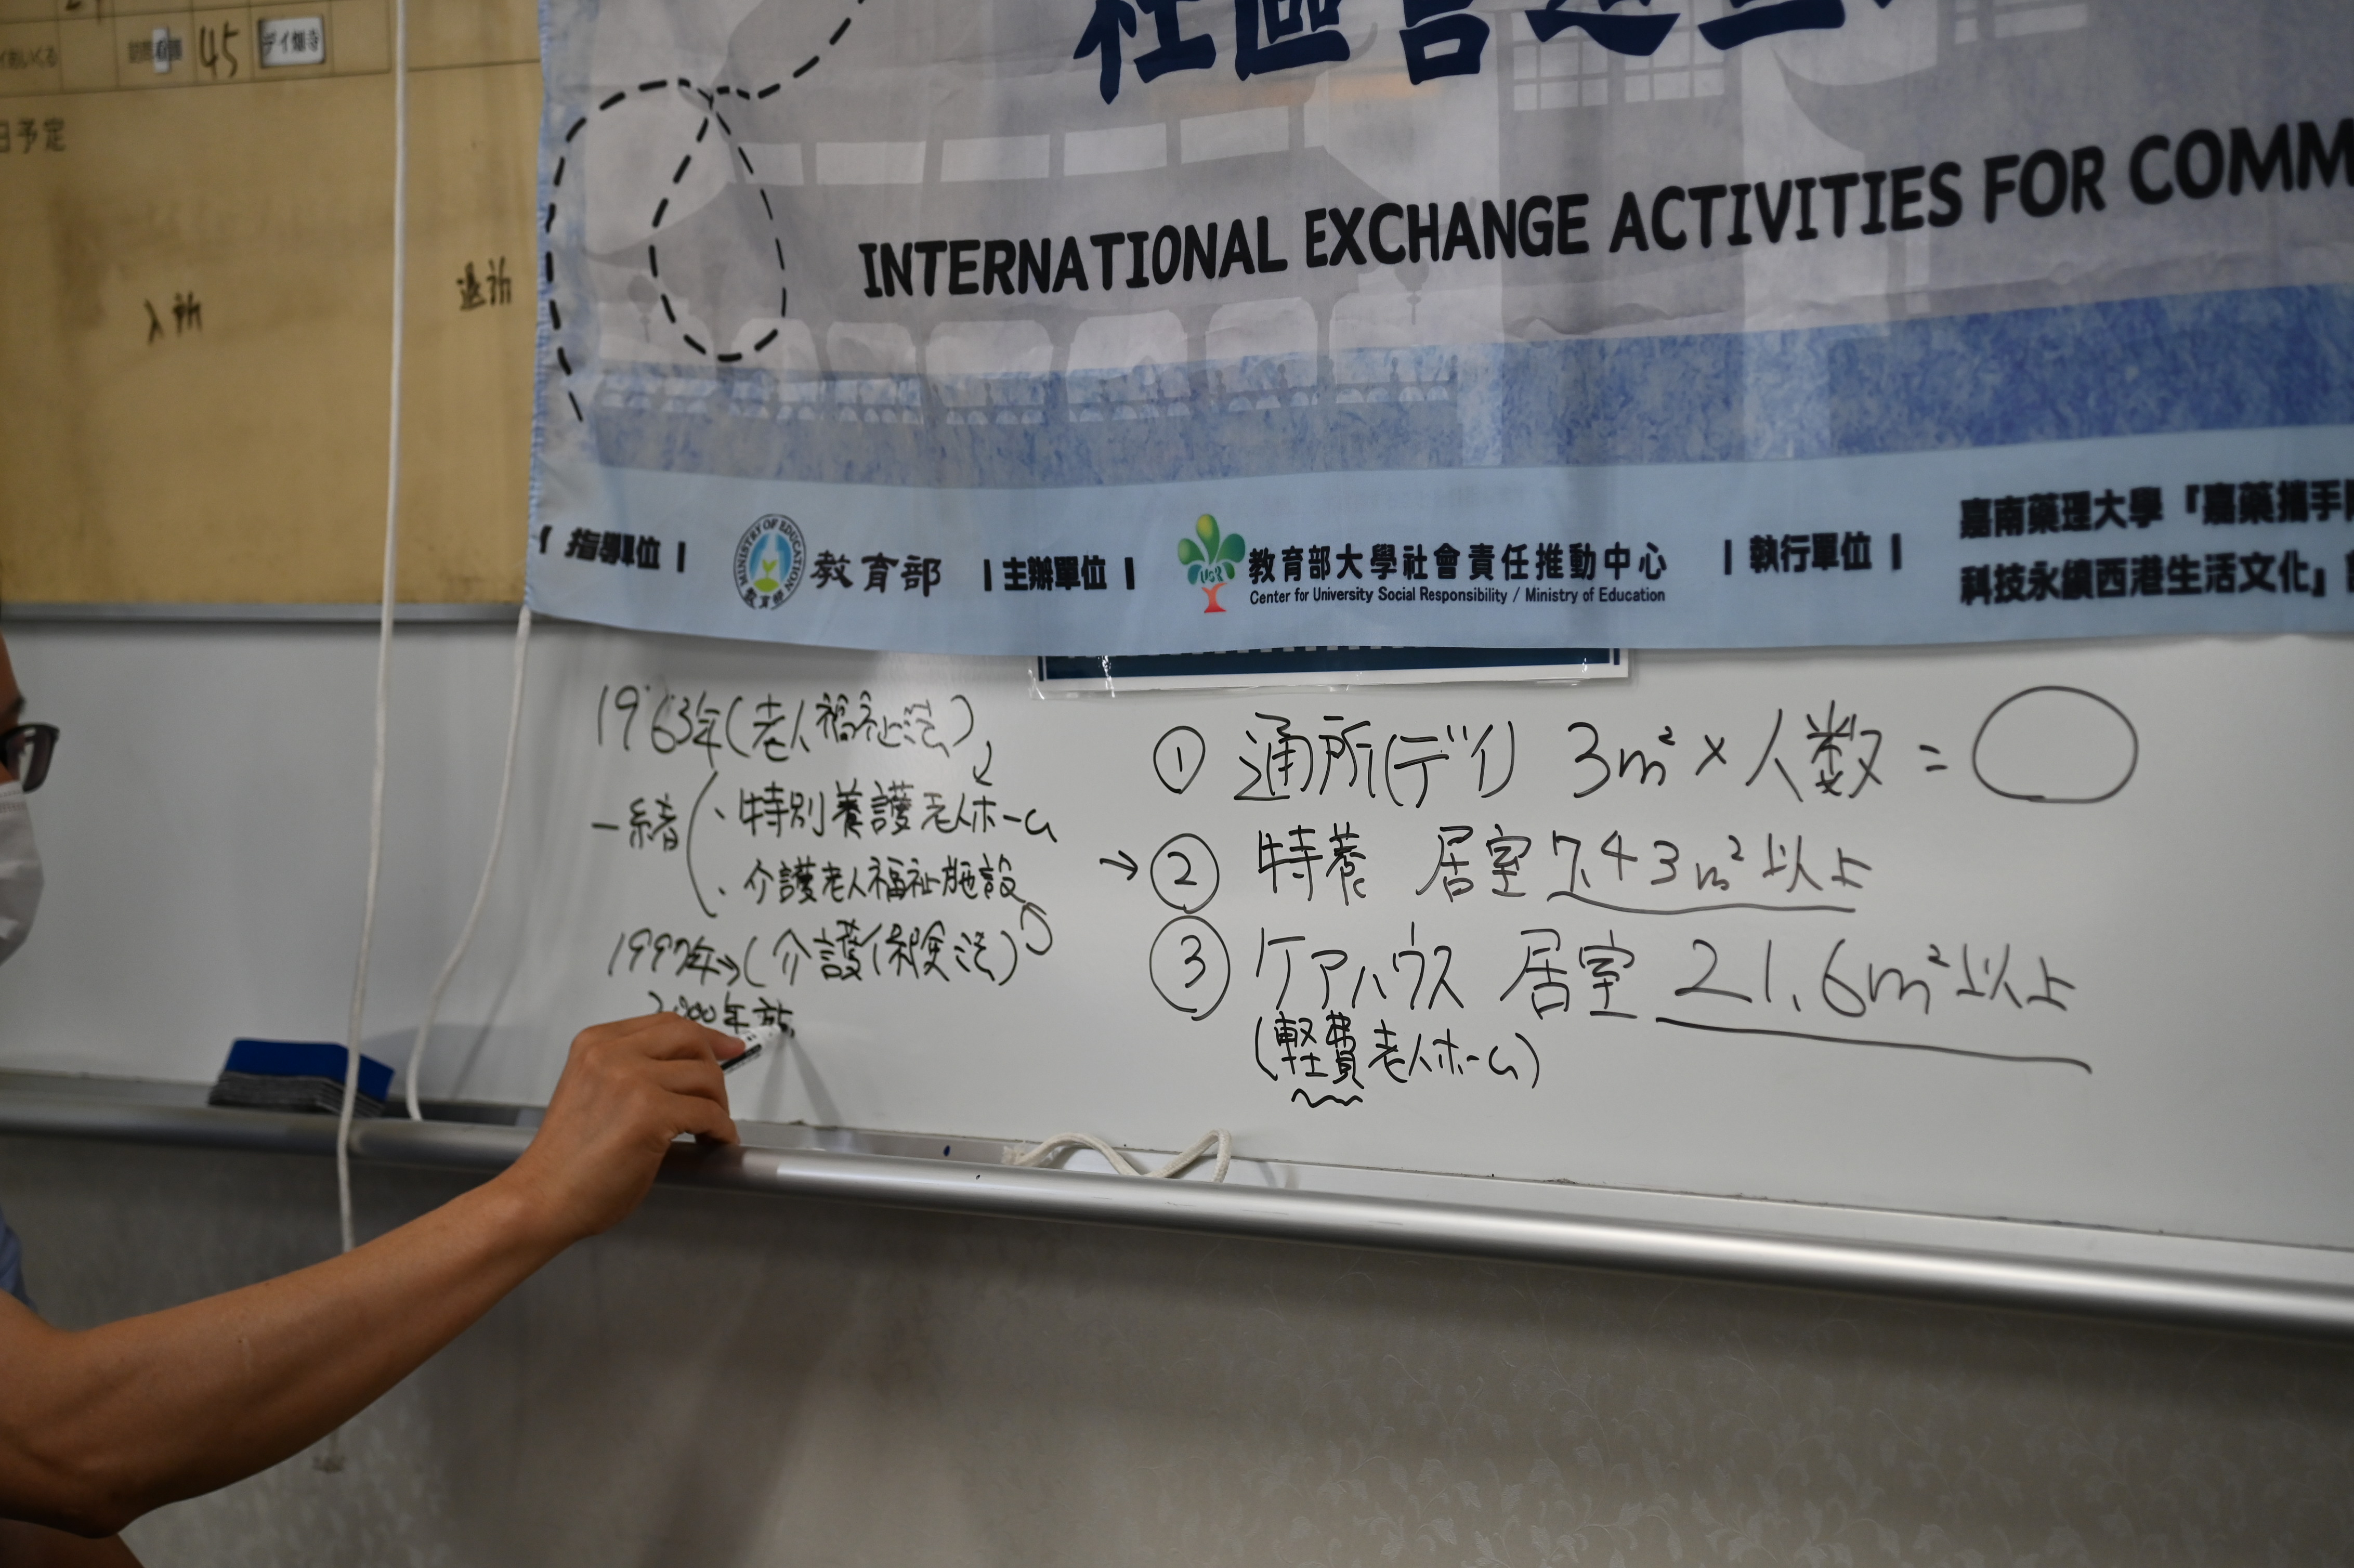 45
デイ畑寺
日予定
入所
退所
INTERNATIONAL EXCHANGE ACTIVITIES FOR COMM
指導單位
MINISTRY OF EDUCATION
教育部
主辦單位
USR
教育部大學社會責任推動中心
Center for University Social Responsibility / Ministry of Education
執行單位
嘉南藥理大學「嘉藥攜手
科技永續西港生活文化」
1963年(老人福祉法)
一緒
・特別養護老人ホーム
・介護老人福祉施設
1997年→(介護保険法)
2000年施
① 通所(デイ) 3m² × 人数 =
→② 特養 居室 7.43m²以上
③ ケアハウス 居室 21.6m²以上
(軽費老人ホーム)